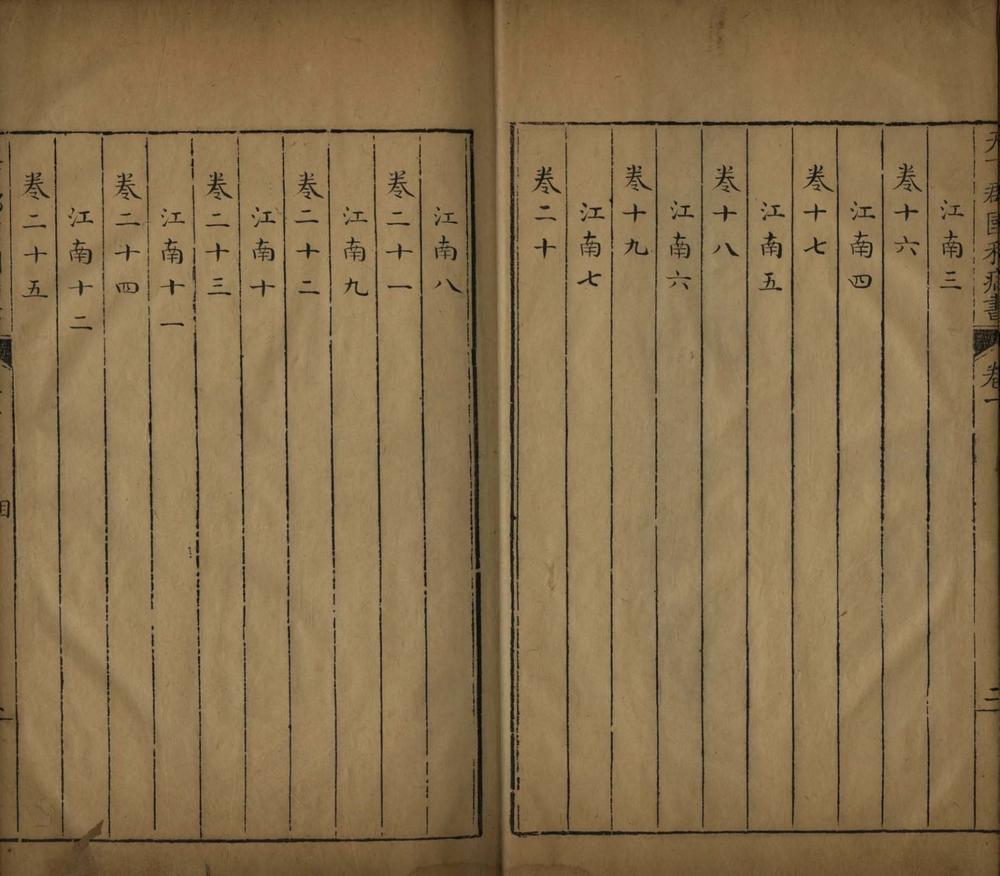 江南三
卷十六
江南四
卷十七
江南五
卷十八
江南六
卷十九
江南七
卷二十
江南八
卷二十一
江南九
卷二十二
江南十
卷二十三
江南十一
卷二十四
江南十二
卷二十五